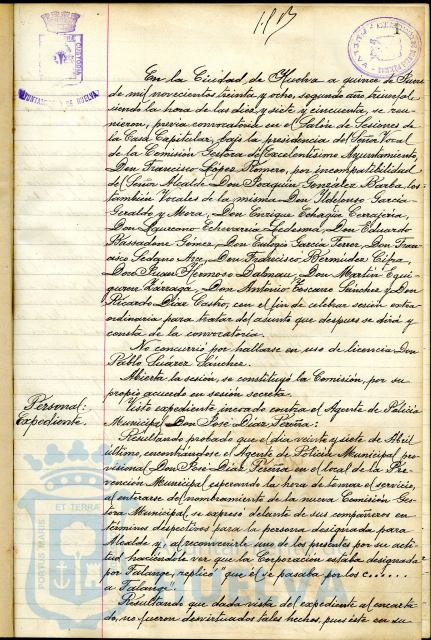 En la Ciudad de Huelva a quince de Junio
de mil novecientos treinta y ocho, segundo año triunfal,
siendo la hora de las diez y siete y cincuenta, se reu-
nieron, previa convocatoria en el Salón de Sesiones de
la Casa Capitular, bajo la presidencia del Señor Vocal
de la Comisión Gestora del Excelentísimo Ayuntamiento,
Don Francisco López Romero, por incompatibilidad
del Señor Alcalde Don Joaquín González Barba, los
también Vocales de la misma Don Ildefonso García-
Geraldo y Mora, Don Enrique Echagüe Cerrajería,
Don Laureano Echevarría Ledesma, Don Eduardo
Bassadone Gómez, Don Eulogio García Ferrer, Don Fran-
cisco Sedano Arce, Don Francisco Bermúdez Cifra,
Don Juan Hermoso Dabnau, Don Martín Egui-
guren Zárraga, Don Antonio Toscano Sánchez y Don
Ricardo Díaz Castro, con el fin de celebrar sesión extra-
ordinaria para tratar del asunto que después se dirá y
consta de la convocatoria.
No concurrió por hallarse en uso de licencia Don
Pablo Suárez Sánchez.
Abierta la sesión, se constituyó la Comisión, por su
propio acuerdo en sesión secreta.
Personal:
Expediente.
Visto expediente incoado contra el Agente de Policía
Municipal Don José Díaz Pereña:
Resultando probado que el día veinte y siete de Abril
último, encontrándose el Agente de Policía Municipal pro-
visional Don José Díaz Pereña en el local de la Pre-
vención Municipal esperando la hora de tomar el servicio,
al enterarse del nombramiento de la nueva Comisión Ges-
tora Municipal, se expresó delante de sus compañeros en
términos despectivos para la persona designada para
Alcalde y al reconvenirle uno de los presentes por su acti-
tud haciéndole ver que la Corporación estaba designada
por Falange, replicó "que él se pasaba por los c......
a Falange".
Resultando que dada vista del expediente al encarta-
do, no fueron desvirtuados tales hechos, pues éste en su
AYUNTAMIENTO DE HUELVA
PORTUS MARIS ET TERRAE
HUELVA